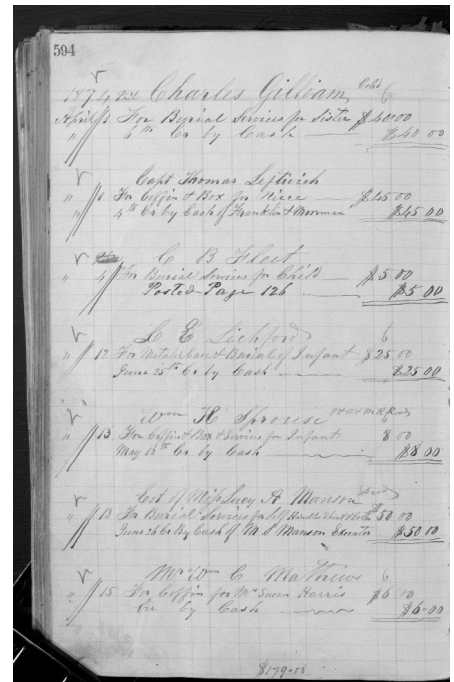 594
1874 Charles Gilliam Cold
April 1 For Burial Services for Sister $40.00
" 4th Cr by Cash $40 00
Capt Thomas Leftwich
" 1 For Coffin & Box for Niece $45.00
" 4th Cr by Cash of Franklin & Moorman $45.00
C B Fleet
" 4 For Burial Services for Child $5 00
Posted Page 126 $5 00
L E Lichford
" 12 For Burial of Infant $25 00
June 25th Cr by Cash $25 00
Wm H Sprouse
" 13 For Coffin & Box & Services for Infant 8 00
May 12th Cr by Cash $8 00
Est of Miss Lucy A. Manson
" 13 For Burial Services for Self $50 00
June 26 Cr By Cash of M. S Manson $50 00
Mr Wm C Mathews
" 15 For Coffin for Mrs Susan Harris $6 00
Cr by Cash $6.00
$179.00